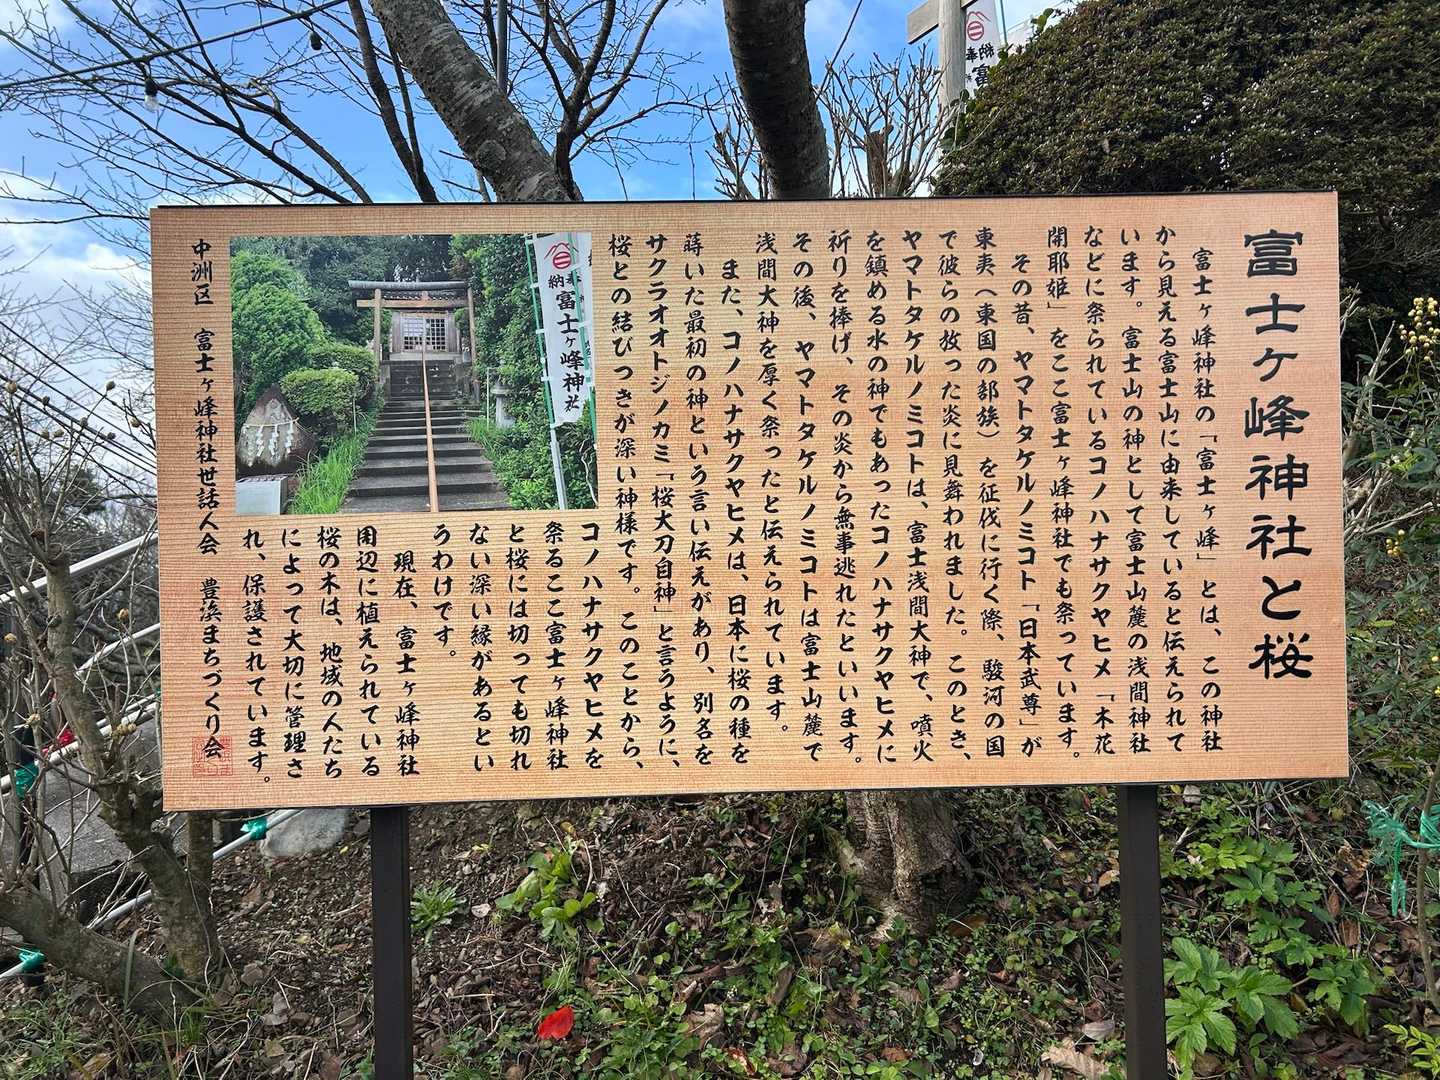 富士ヶ峰神社と桜
富士ヶ峰神社の「富士ヶ峰」とは、この神社
から見える富士山に由来していると伝えられて
います。富士山の神として富士山麓の浅間神社
などに祭られているコノハナサクヤヒメ「木花
開耶姫」をここ富士ヶ峰神社でも祭っています。
その昔、ヤマトタケルノミコト「日本武尊」が
東夷（東国の部族）を征伐に行く際、駿河の国
で彼らの放った炎に見舞われました。このとき、
ヤマトタケルノミコトは、富士浅間大神で、噴火
を鎮める水の神でもあったコノハナサクヤヒメに
祈りを捧げ、その炎から無事逃れたといいます。
その後、ヤマトタケルノミコトは富士山麓で
浅間大神を厚く祭ったと伝えられています。
また、コノハナサクヤヒメは、日本に桜の種を
蒔いた最初の神という言い伝えがあり、別名を
サクラオオトジノカミ「桜大刀自神」と言うように、
桜との結びつきが深い神様です。このことから、
コノハナサクヤヒメを
祭るここ富士ヶ峰神社
と桜には切っても切れ
ない深い縁があるとい
うわけです。
現在、富士ヶ峰神社
周辺に植えられている
桜の木は、地域の人たち
によって大切に管理さ
れ、保護されています。
中洲区 富士ヶ峰神社世話人会 豊浜まちづくり会
奉納 富士ヶ峰神社
奉納 富